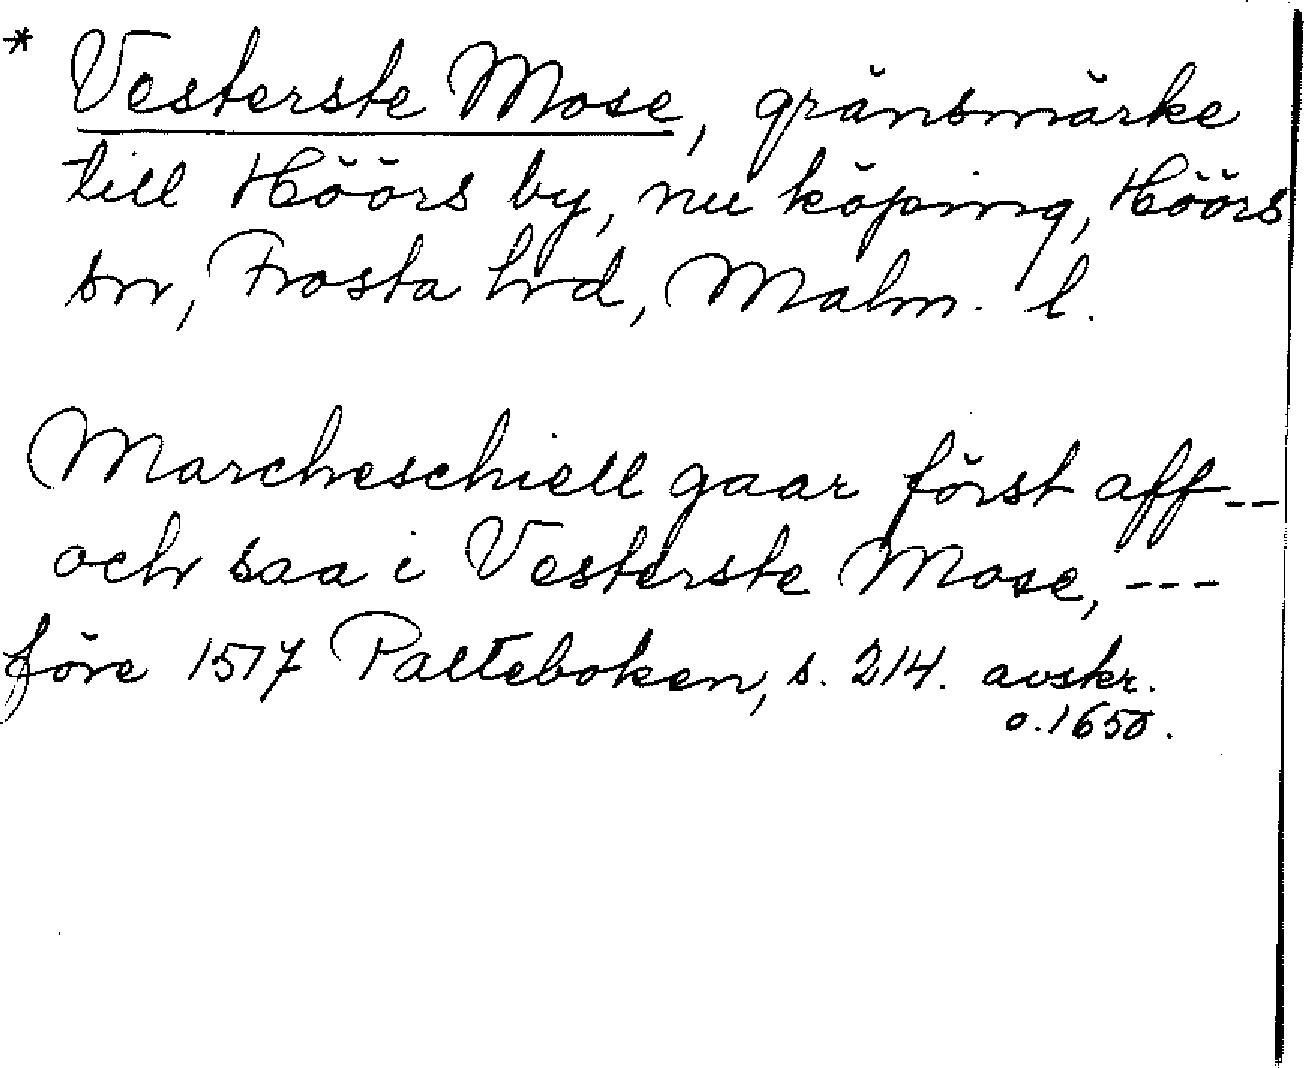 * Vesterste Mose, gränsmärke
till Höörs by, nu köping, Höörs
sn, Frosta hd, Malm. l.
Marcheschiell gaar först aff --
och saa i Vesterste Mose, ---
före 1517 Palteboken, s. 214. avskr.
o. 1650.